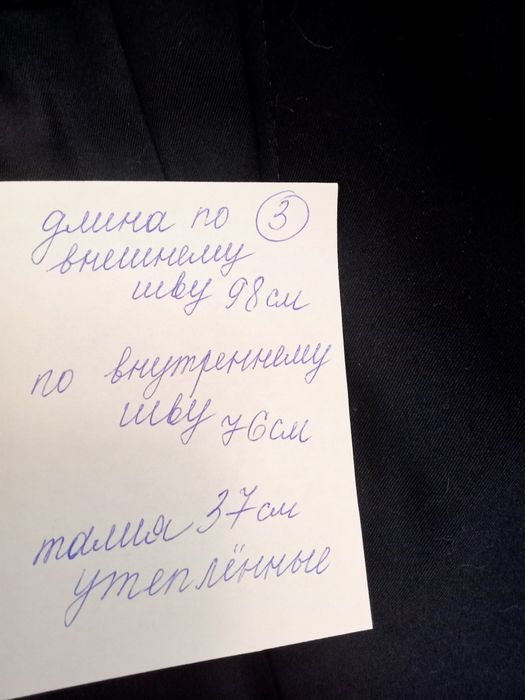 длина по 3
внешнему
шву 98см
по внутреннему
шву 76см
талия 37см
утеплённые